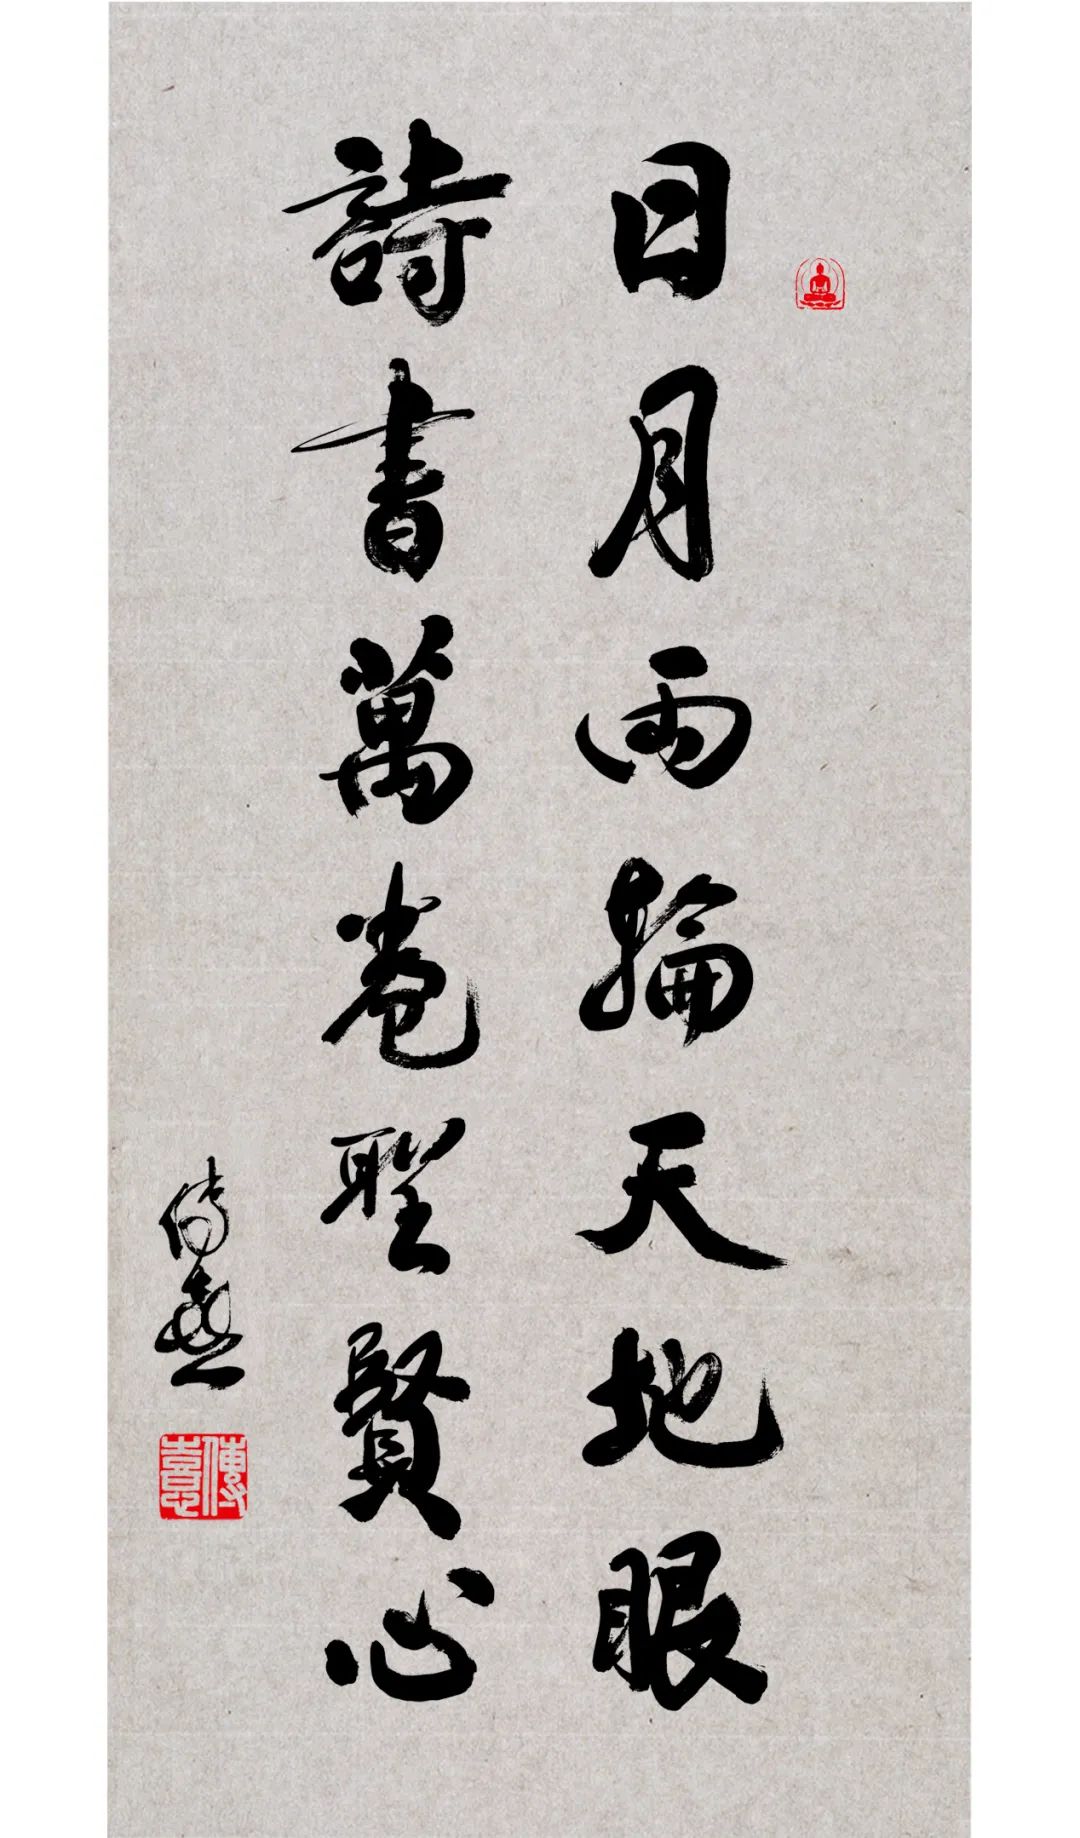 日月兩輪天地眼
詩書萬卷聖賢心
傳喜
傳喜